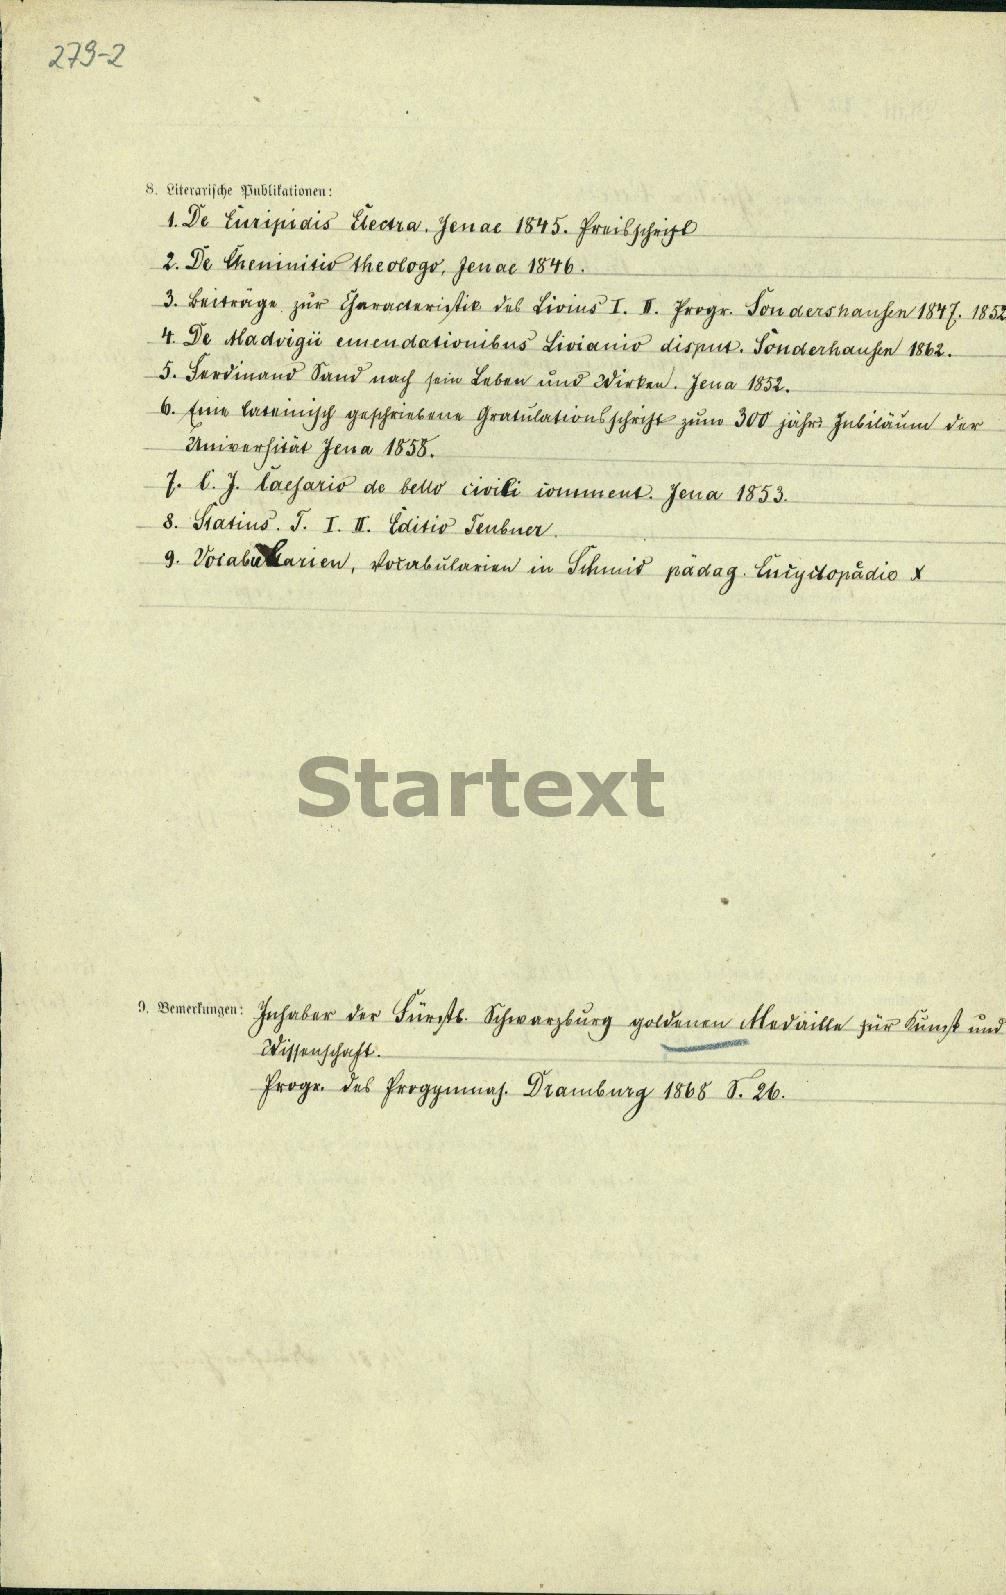 279-2
8. Literarische Publikationen:
1. De Euripidis Electra. Jenae 1845. Preisschrift
2. De Cheminitio theologo, Jenae 1846.
3. Beiträge zur Characteristik des Livius I. II. Progr. Sondershausen 1847. 1852
4. De Madvigii emendationibus Livianis disput. Sonderhausen 1862.
5. Ferdinand Hand nach sein Leben und Wirken. Jena 1852.
6. Eine lateinisch geschriebene Gratulationsschrift zum 300 jähr. Jubiläum der
Universität Jena 1858.
7. C. J. Caesaris de bello civili comment. Jena 1853.
8. Statius. T. I. II. Editio Teubner.
9. Vocabularien, Vocabularien in Schmid pädag. Encyclopädie X
Startext
9. Bemerkungen: Inhaber der Fürstl. Schwarzburg goldenen Medaille für Kunst und
Wissenschaft.
Progr. des Progymnas. Dramburg 1868 S. 26.